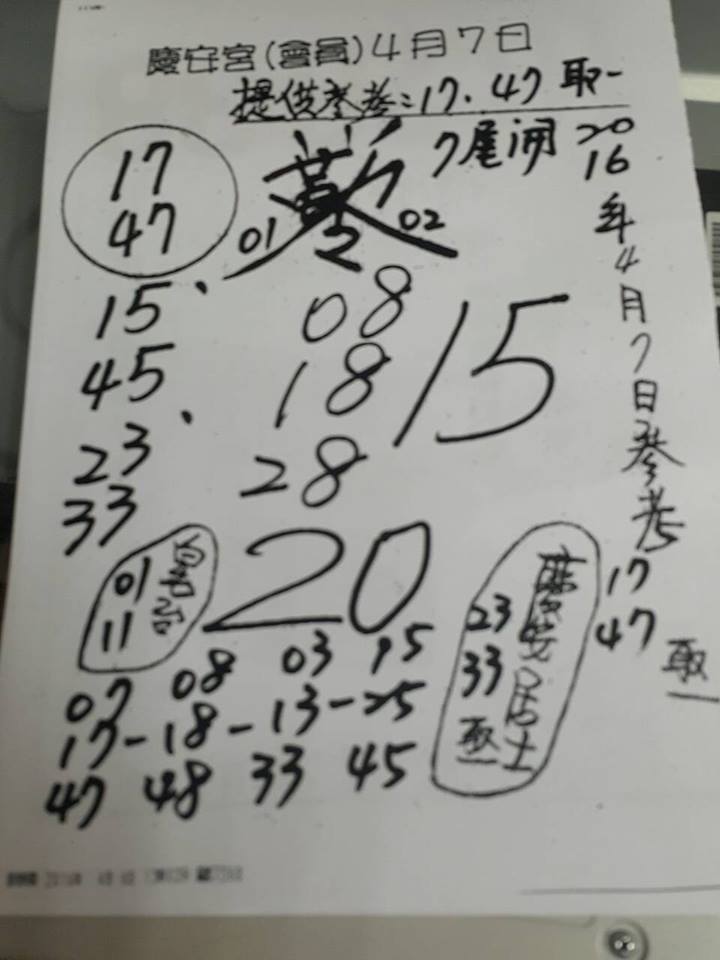 慶安宮(會員)4月7日
提供參考:17.47 取一
7尾開
2016年4月7日參考
17
47
取一
17
47
01
02
15、
45
23、
33
08
18
28
15
20
01
11
慶安居士
23
33
取一
07 08 03 15
17-18-13-25
47 48 33 45